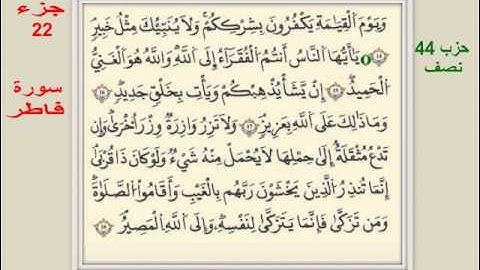 جزء
22
سورة
فاطر
حزب 44
نصف
وَيَوْمَ ٱلْقِيَٰمَةِ يَكْفُرُونَ بِشِرْكِكُمْ ۚ وَلَا يُنَبِّئُكَ مِثْلُ خَبِيرٍ
۝١٤ يَٰٓأَيُّهَا ٱلنَّاسُ أَنتُمُ ٱلْفُقَرَآءُ إِلَى ٱللَّهِ ۖ وَٱللَّهُ هُوَ ٱلْغَنِىُّ
ٱلْحَمِيدُ ۝١٥ إِن يَشَأْ يُذْهِبْكُمْ وَيَأْتِ بِخَلْقٍ جَدِيدٍ ۝١٦
وَمَا ذَٰلِكَ عَلَى ٱللَّهِ بِعَزِيزٍ ۝١٧ وَلَا تَزِرُ وَازِرَةٌ وِزْرَ أُخْرَىٰ ۚ وَإِن
تَدْعُ مُثْقَلَةٌ إِلَىٰ حِمْلِهَا لَا يُحْمَلْ مِنْهُ شَىْءٌ وَلَوْ كَانَ ذَا قُرْبَىٰٓ ۗ
إِنَّمَا تُنذِرُ ٱلَّذِينَ يَخْشَوْنَ رَبَّهُم بِٱلْغَيْبِ وَأَقَامُوا۟ ٱلصَّلَوٰةَ ۚ
وَمَن تَزَكَّىٰ فَإِنَّمَا يَتَزَكَّىٰ لِنَفْسِهِۦ ۚ وَإِلَى ٱللَّهِ ٱلْمَصِيرُ ۝١٨